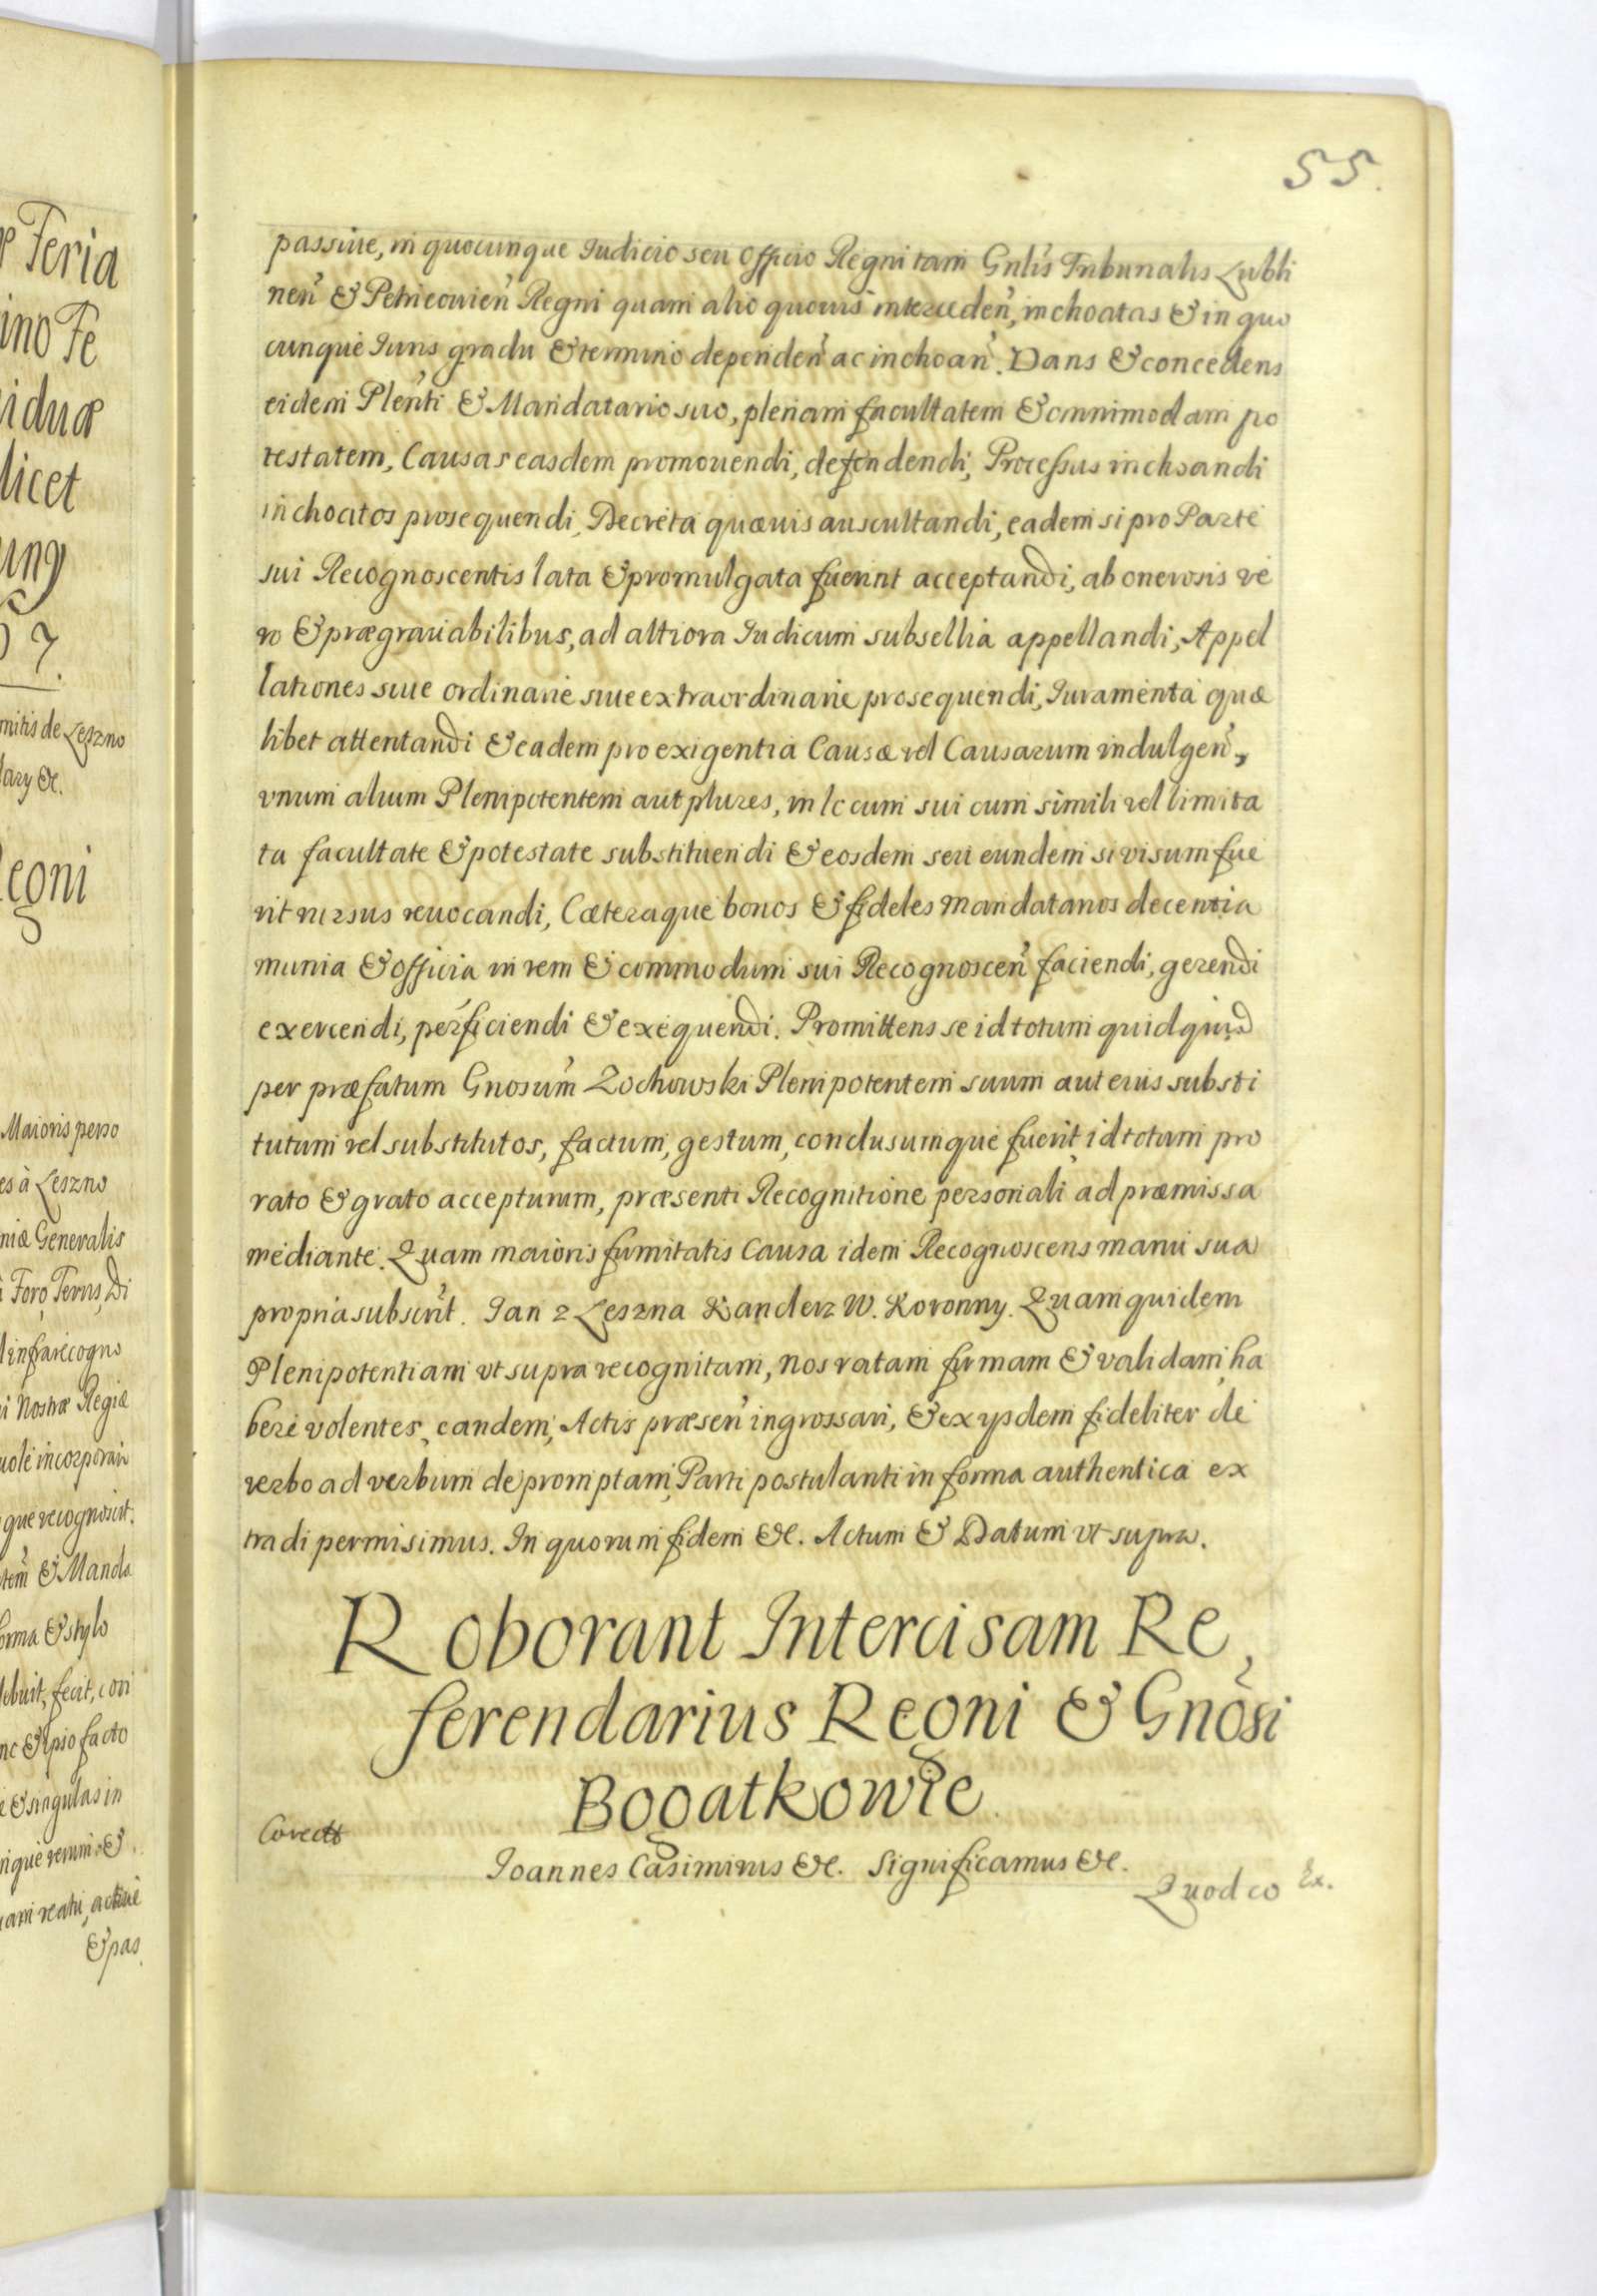 55.
passiue, in quocunque Iudicio seu Officio Regni tam Gnlis Tribunalis Lubli
nen̄ & Petricouien̄ Regni quam alio quouis interceden̄, inchoatas & in quo
cunque Iuris gradu & termino dependen̄ ac inchoan̄. Dans & concedens
eidem Plenti & Mandatario suo, plenam facultatem & omnimodam po
testatem, Causas easdem promouendi, defendendi, Processus inchoandi
inchoatos prosequendi, Decreta quæuis auscultandi, eadem si pro Parte
sui Recognoscentis lata & promulgata fuerint acceptandi, ab onerosis ve
ro & prægrauabilibus, ad altiora Iudicum subsellia appellandi, Appel
lationes siue ordinarie siue extraordinarie prosequendi, Iuramenta quæ
libet attentandi & eadem pro exigentia Causæ vel Causarum indulgen̄,
vnum alium Plenipotentem aut plures, in locum sui cum simili vel limita
ta facultate & potestate substituendi & eosdem seu eundem si visum fue
rit rursus reuocandi, Cæteraque bonos & fideles mandatarios decentia
munia & officia in rem & commodum sui Recognoscen̄ faciendi, gerendi
exercendi, perficiendi & exequendi. Promittens se id totum quidquid
per præfatum Gnosum Zochowski Plenipotentem suum aut eius substi
tutum vel substitutos, factum, gestum, conclusumque fuerit, id totum pro
rato & grato accepturum, præsenti Recognitione personali ad præmissa
mediante. Quam maioris firmitatis Causa idem Recognoscens manu sua
propria subscrit. Ian z Leszna Kanclerz W. Koronny. Quam quidem
Plenipotentiam vt supra recognitam, nos ratam firmam & validam, ha
beri volentes, eandem, Actis præsen̄ ingrossari, & ex ysdem fideliter de
verbo ad verbum depromptam, Parti postulanti in forma authentica ex
tradi permisimus. In quorum fidem &c. Actum & Datum vt supra.
Roborant Intercisam Re
ferendarius Regni & Gnosi
Bogatkowie
Corect
Ioannes Casimirus &c. Significamus &c.
Quod co Ex.
Feria
ino Fe
iduæ
licet
ung
7.
mitis de Leszno
lary &c.
Regni
Maioris perso
es à Leszno
niæ Generalis
Foro Terris, Di
infrarecogno
i Nostræ Regiæ
uole incorporari
que recognouit.
tem & Manda
forma & stylo
debuit, fecit, con
nc & ipso facto
e & singulas in
nque rerum &
uam reatu, actiue
& pas